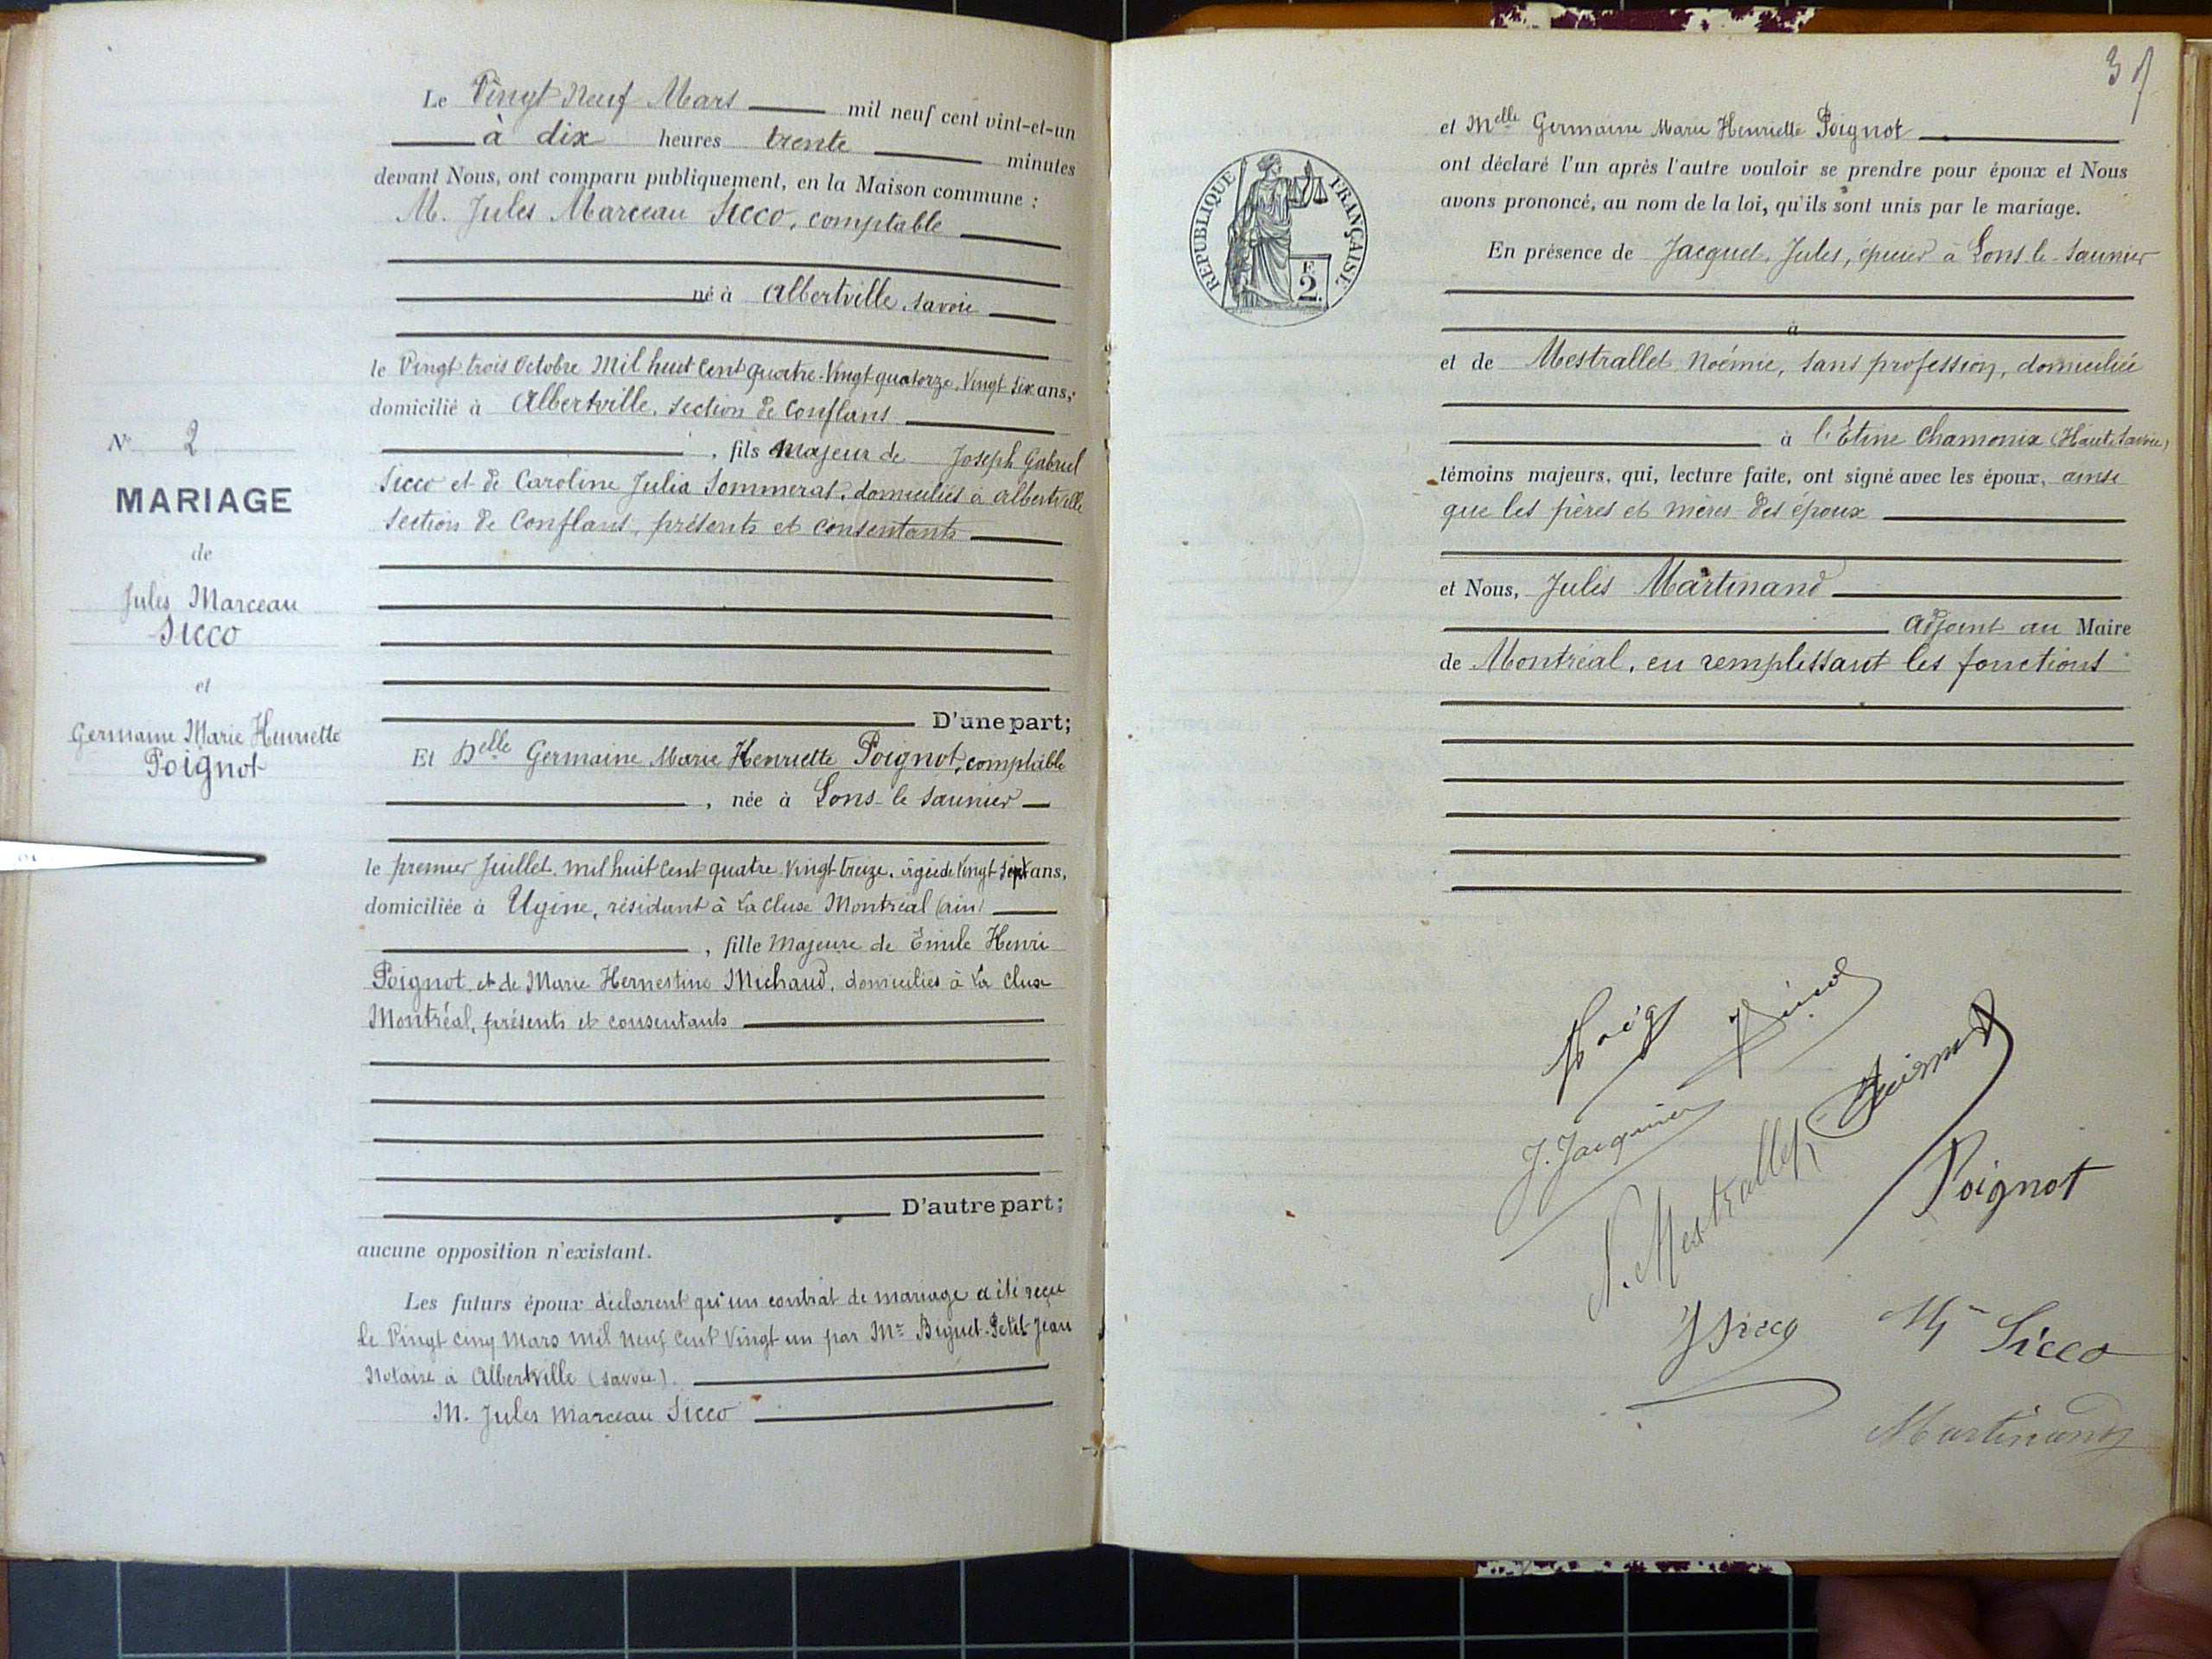 Le Vingt Neuf Mars mil neuf cent vint-et-un
à dix heures trente minutes
devant Nous, ont comparu publiquement, en la Maison commune :
M. Jules Marceau Sicco, comptable
né à Albertville, Savoie
le Vingt trois Octobre Mil huit Cent quatre-Vingt quatorze, Vingt Six ans,
domicilié à Albertville, Section de Conflans
, fils Majeur de Joseph Gabriel
Sicco et de Caroline Julia Sommerat, domiciliés à albertville
Section de Conflans, présents et consentants
D'une part;
Et Delle Germaine Marie Henriette Poignot, comptable
, née à Lons-le Saunier
le premier Juillet mil huit Cent quatre Vingt treize, âgée de Vingt Sept ans,
domiciliée à Ugine, résidant à La Cluse Montréal (ain)
, fille Majeure de Émile Henri
Poignot et de Marie Hernestine Michaud, domiciliés à La Cluse
Montréal, présents et consentants
D'autre part;
aucune opposition n'existant.
Les futurs époux déclarent qu'un contrat de mariage a été reçu
le Vingt cinq Mars mil neuf Cent Vingt un par Me Biguet-Petit-Jean
Notaire à Albertville (Savoie).
M. Jules Marceau Sicco
No 2
MARIAGE
de
Jules Marceau
Sicco
et
Germaine Marie Henriette
Poignot
et Melle Germaine Marie Henriette Poignot
ont déclaré l'un après l'autre vouloir se prendre pour époux et Nous
avons prononcé, au nom de la loi, qu'ils sont unis par le mariage.
En présence de Jules, à Lons-le-Saunier
à
et de Mestrallet Noémie, sans profession, domiciliée
à Chamonix (Haute Savoie)
témoins majeurs, qui, lecture faite, ont signé avec les époux, ainsi
que les pères et mères des époux
et Nous, Jules Martinand
Adjoint au Maire
de Montréal, en remplissant les fonctions
REPUBLIQUE FRANÇAISE.
F
2.
J. Jacquier
N. Mestrallet
Poignot
Sicco
Martinand